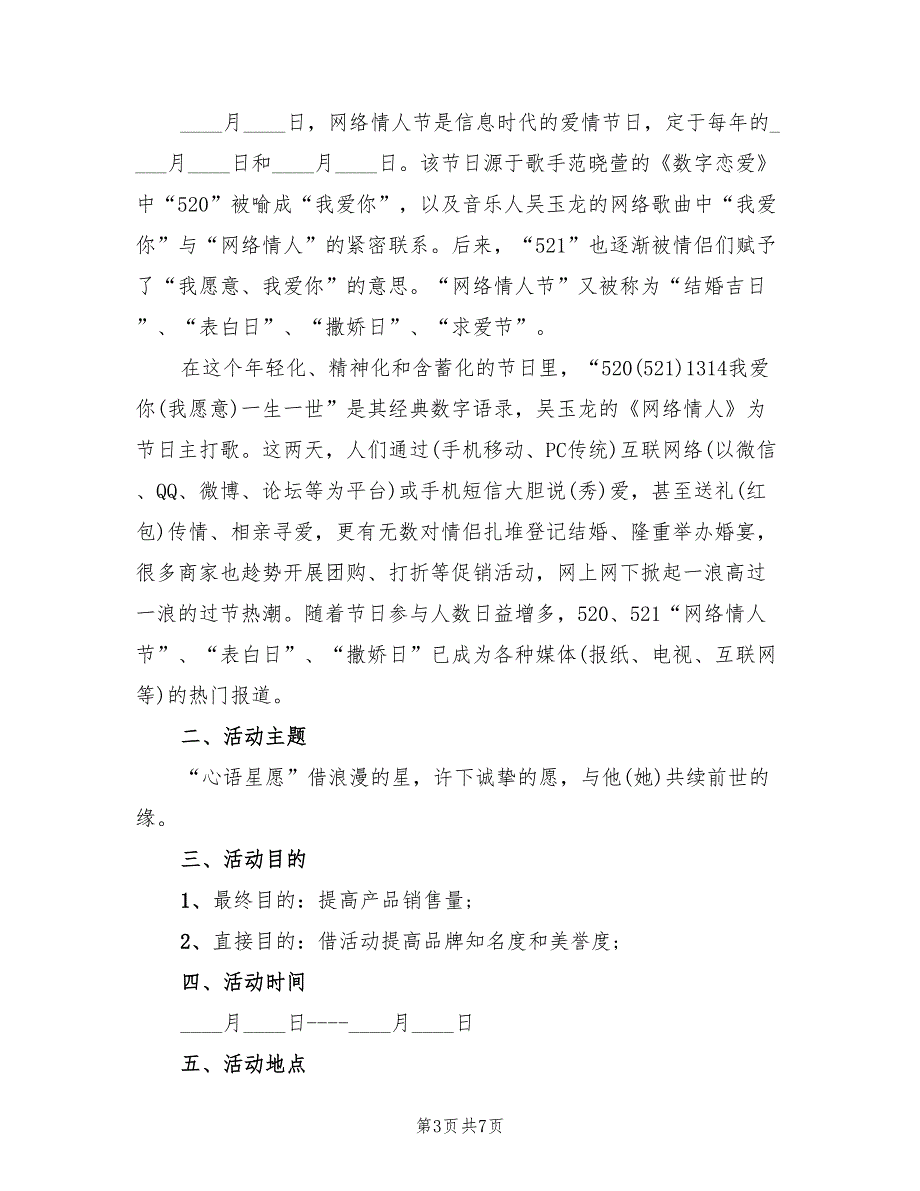 ____月____日，网络情人节是信息时代的爱情节日，定于每年的_
___月____日和____月____日。该节日源于歌手范晓萱的《数字恋爱》
中“520”被喻成“我爱你”，以及音乐人吴玉龙的网络歌曲中“我爱
你”与“网络情人”的紧密联系。后来，“521”也逐渐被情侣们赋予
了“我愿意、我爱你”的意思。“网络情人节”又被称为“结婚吉日
”、“表白日”、“撒娇日”、“求爱节”。
在这个年轻化、精神化和含蓄化的节日里，“520(521)1314我爱
你(我愿意)一生一世”是其经典数字语录，吴玉龙的《网络情人》为
节日主打歌。这两天，人们通过(手机移动、PC传统)互联网络(以微信
、QQ、微博、论坛等为平台)或手机短信大胆说(秀)爱，甚至送礼(红
包)传情、相亲寻爱，更有无数对情侣扎堆登记结婚、隆重举办婚宴，
很多商家也趁势开展团购、打折等促销活动，网上网下掀起一浪高过
一浪的过节热潮。随着节日参与人数日益增多，520、521“网络情人
节”、“表白日”、“撒娇日”已成为各种媒体(报纸、电视、互联网
等)的热门报道。
二、活动主题
“心语星愿”借浪漫的星，许下诚挚的愿，与他(她)共续前世的
缘。
三、活动目的
1、最终目的：提高产品销售量;
2、直接目的：借活动提高品牌知名度和美誉度;
四、活动时间
____月____日----____月____日
五、活动地点
第3页 共7页